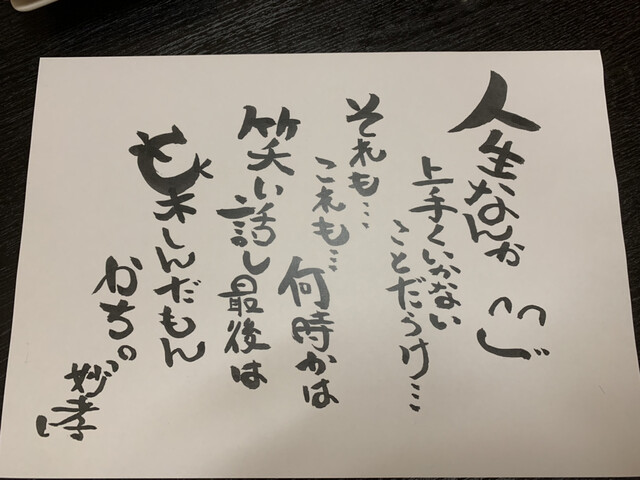 人生なんか
上手くいかない
ことだらけ…
それも…
これも…
何時かは
笑い話し
最後は
楽しんだもん
かち。
妙孝